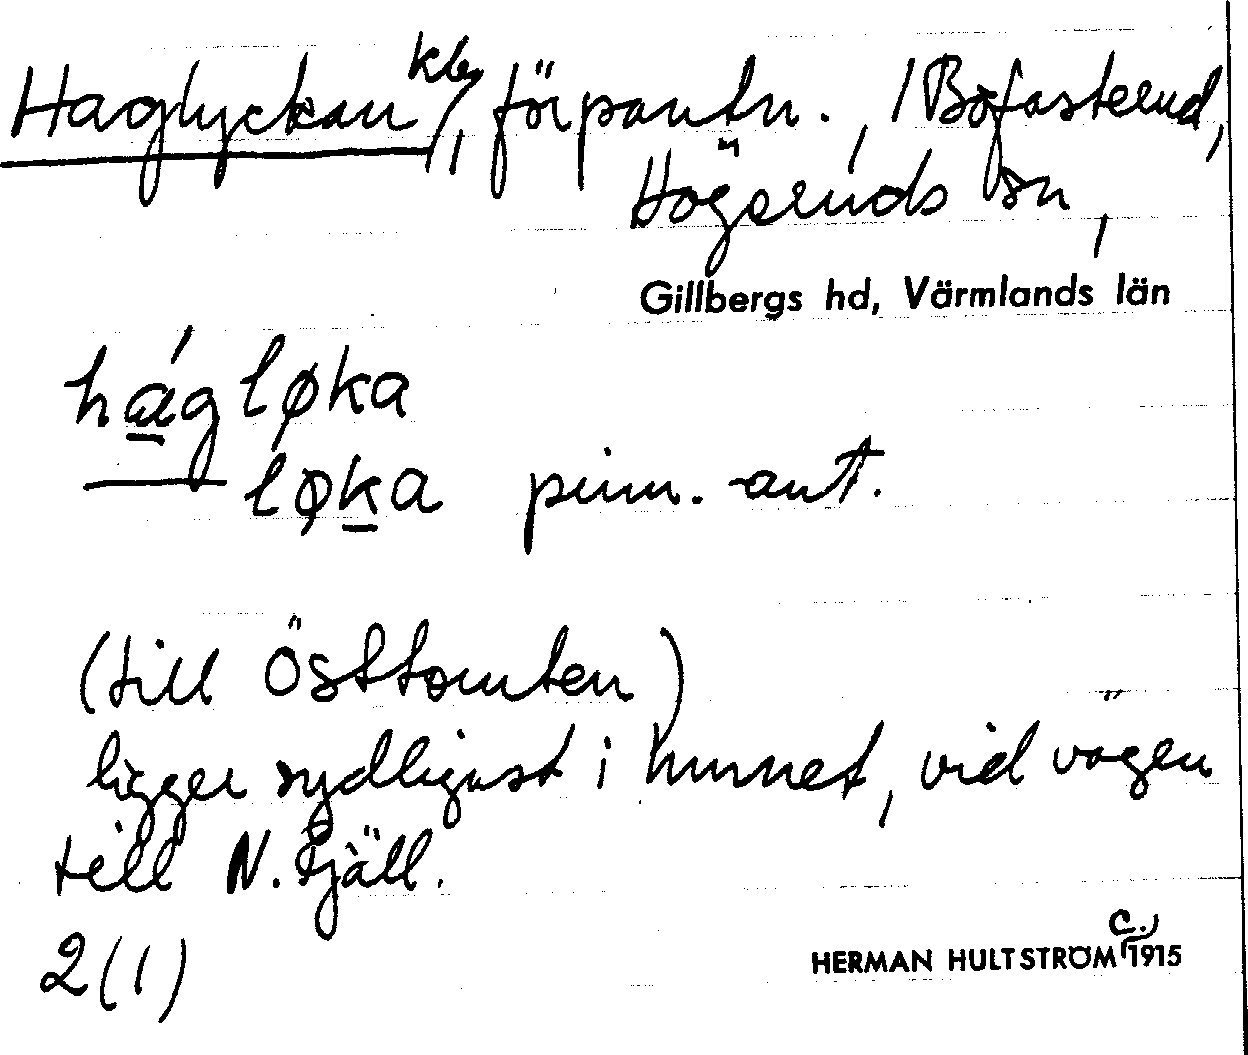 Haglyckan, kle, förpantn., 1 Bofasterud,
Högeruds sn,
Gillbergs hd, Värmlands län
hágløka
—— løka
(till Östtomten)
ligger sydligast i hunnet, vid vägen
till N. Fjäll.
2 (1)
HERMAN HULTSTRÖM c. 1915